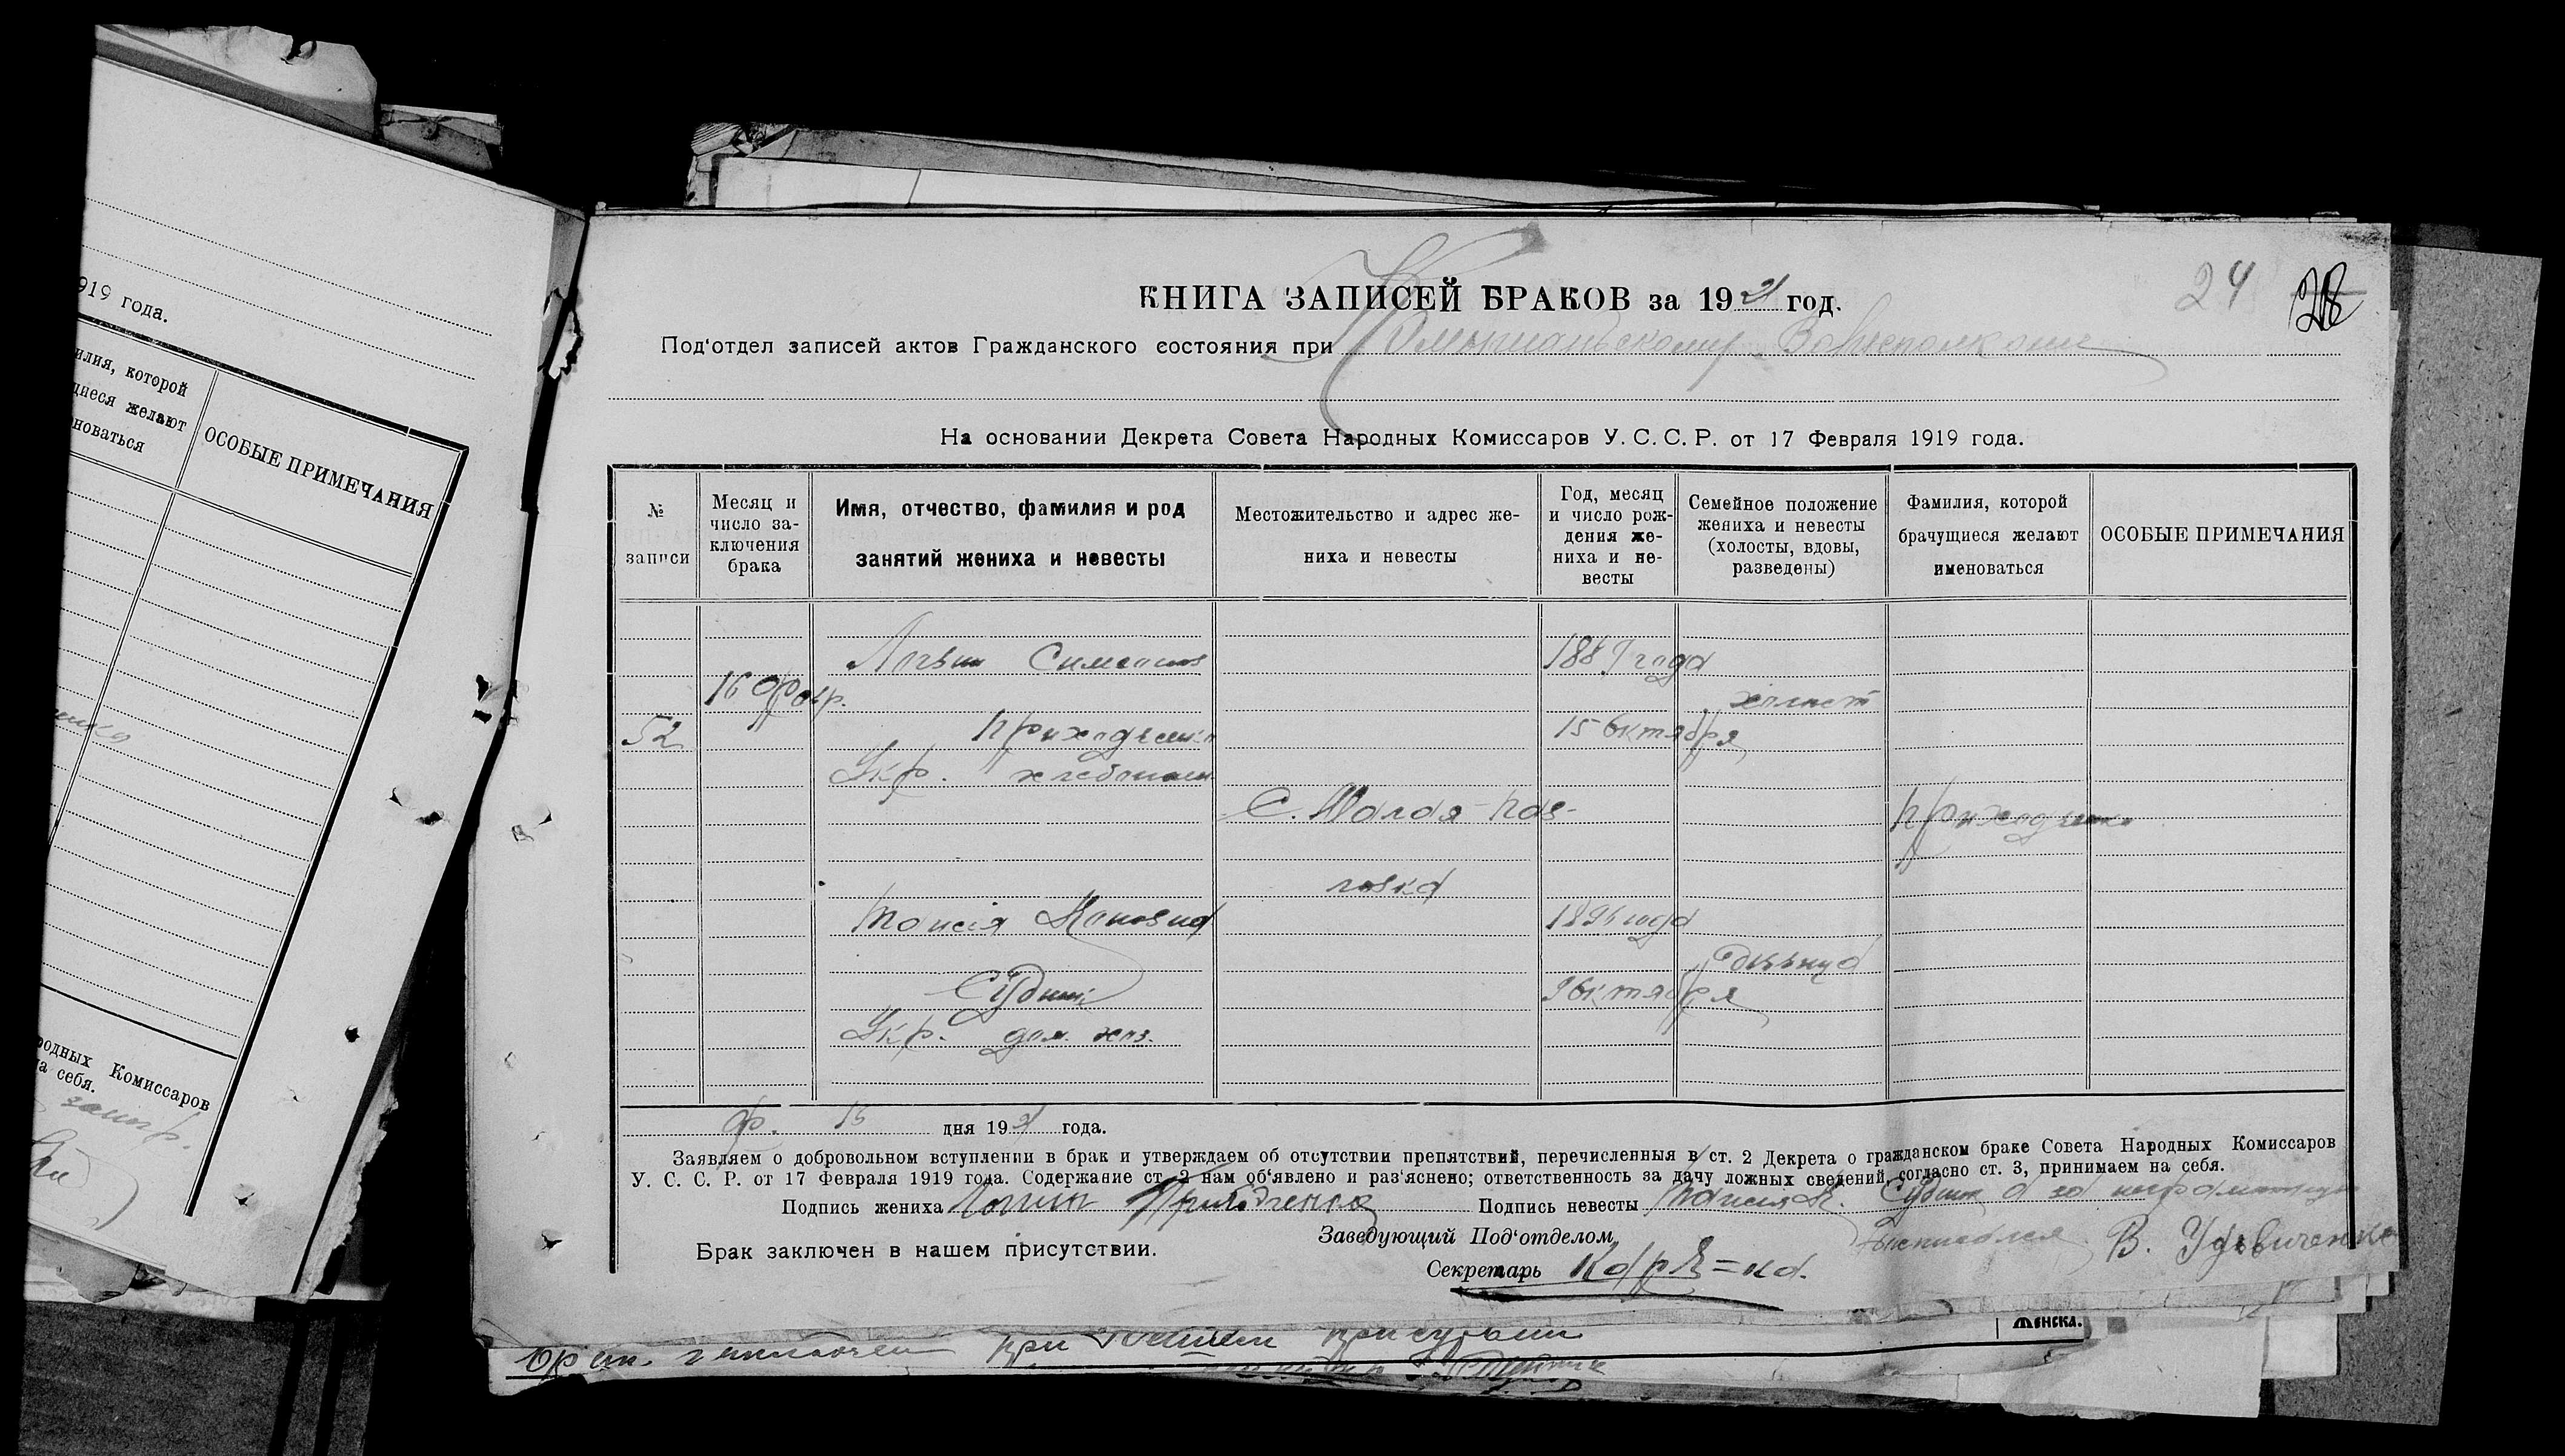 919 года.
илия, которой
щиеся желают
новаться
ОСОБЫЕ ПРИМЕЧАНИЯ
родных Комиссаров
а себя.
24 28
КНИГА ЗАПИСЕЙ БРАКОВ за 1921 год.
Под'отдел записей актов Гражданского состояния при Камышанском Волисполкоме
На основании Декрета Совета Народных Комиссаров У. С. С. Р. от 17 Февраля 1919 года.
№ записи
Месяц и число заключения брака
Имя, отчество, фамилия и род занятий жениха и невесты
Местожительство и адрес жениха и невесты
Год, месяц и число рождения жениха и невесты
Семейное положение жениха и невесты (холосты, вдовы, разведены)
Фамилия, которой брачущиеся желают именоваться
ОСОБЫЕ ПРИМЕЧАНИЯ
Логвин Симеонов 1889 года
16 Февр. холост
52 Приходченко 15 октября
Укр. хлебопаш.
С. Малая-Пав- Приходченко
ловка
Таисія 1896 года
девица
Судник 9 октября
Укр. дом. хоз.
Ф. 15 дня 1921 года.
Заявляем о добровольном вступлении в брак и утверждаем об отсутствии препятствий, перечисленныя в ст. 2 Декрета о гражданском браке Совета Народных Комиссаров
У. С. С. Р. от 17 Февраля 1919 года. Содержание ст. 2 нам об'явлено и раз'яснено; ответственность за дачу ложных сведений, согласно ст. 3, принимаем на себя.
Подпись жениха Логин Приходченко Подпись невесты Таисия К. Судник а за неграмотную
Заведующий Под'отделом расписался В. Удовиченко
Брак заключен в нашем присутствии.
Секретарь
Женска.